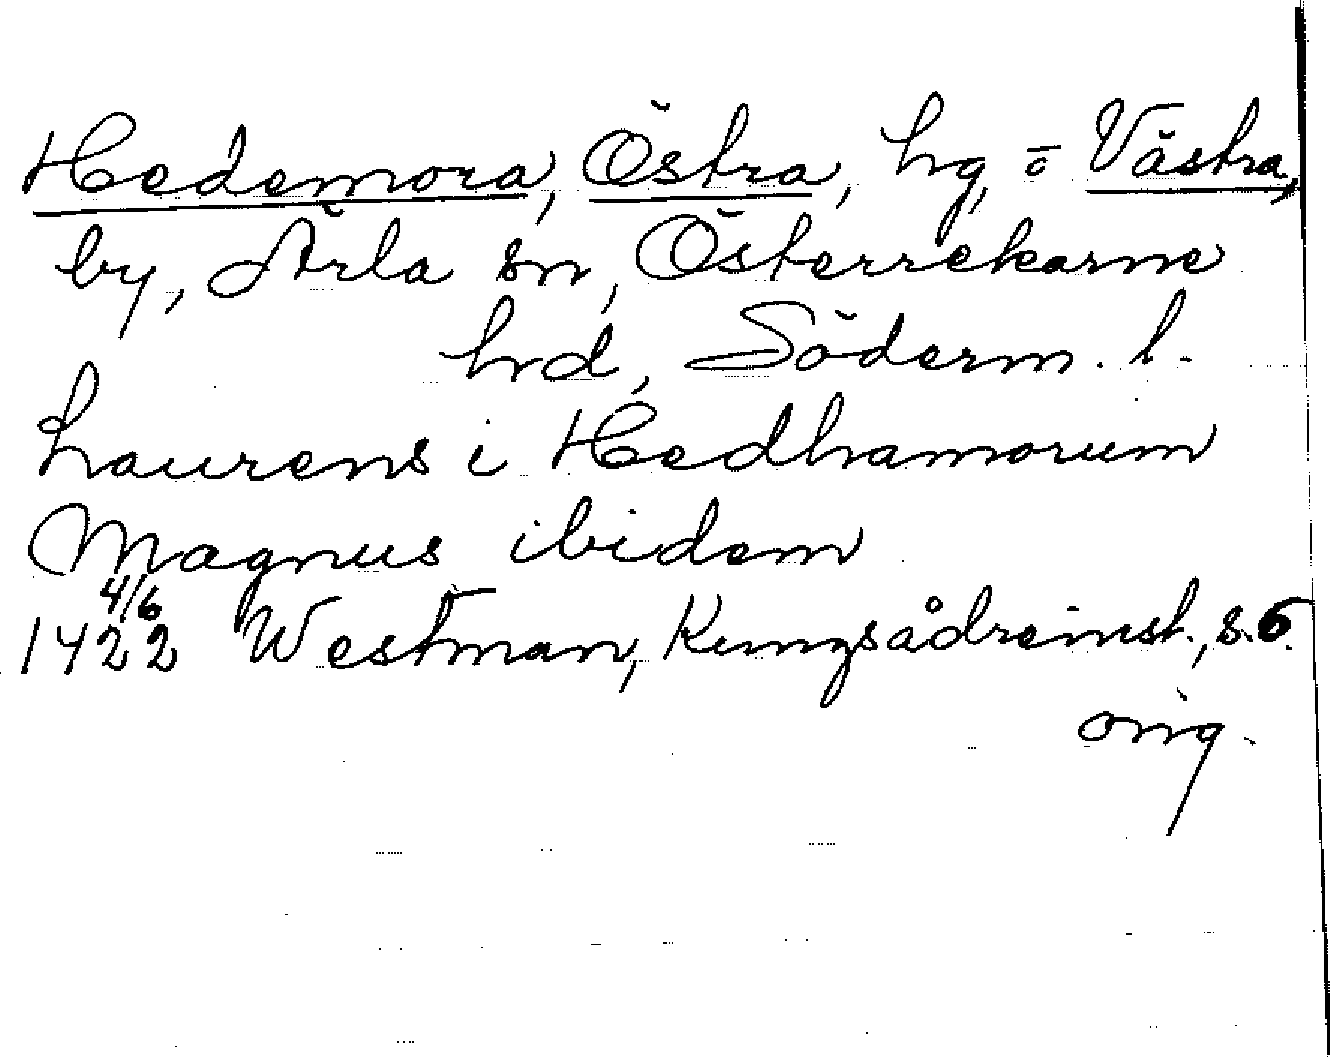 Hedemora, Östra, hg, o Västra,
by, Ärla sn, Österrekarne
hd, Söderm. l.
Laurens i Hedhamorum
Magnus ibidem
4/6
1422 Westman, Kungsådreinst., s. 6.
orig.